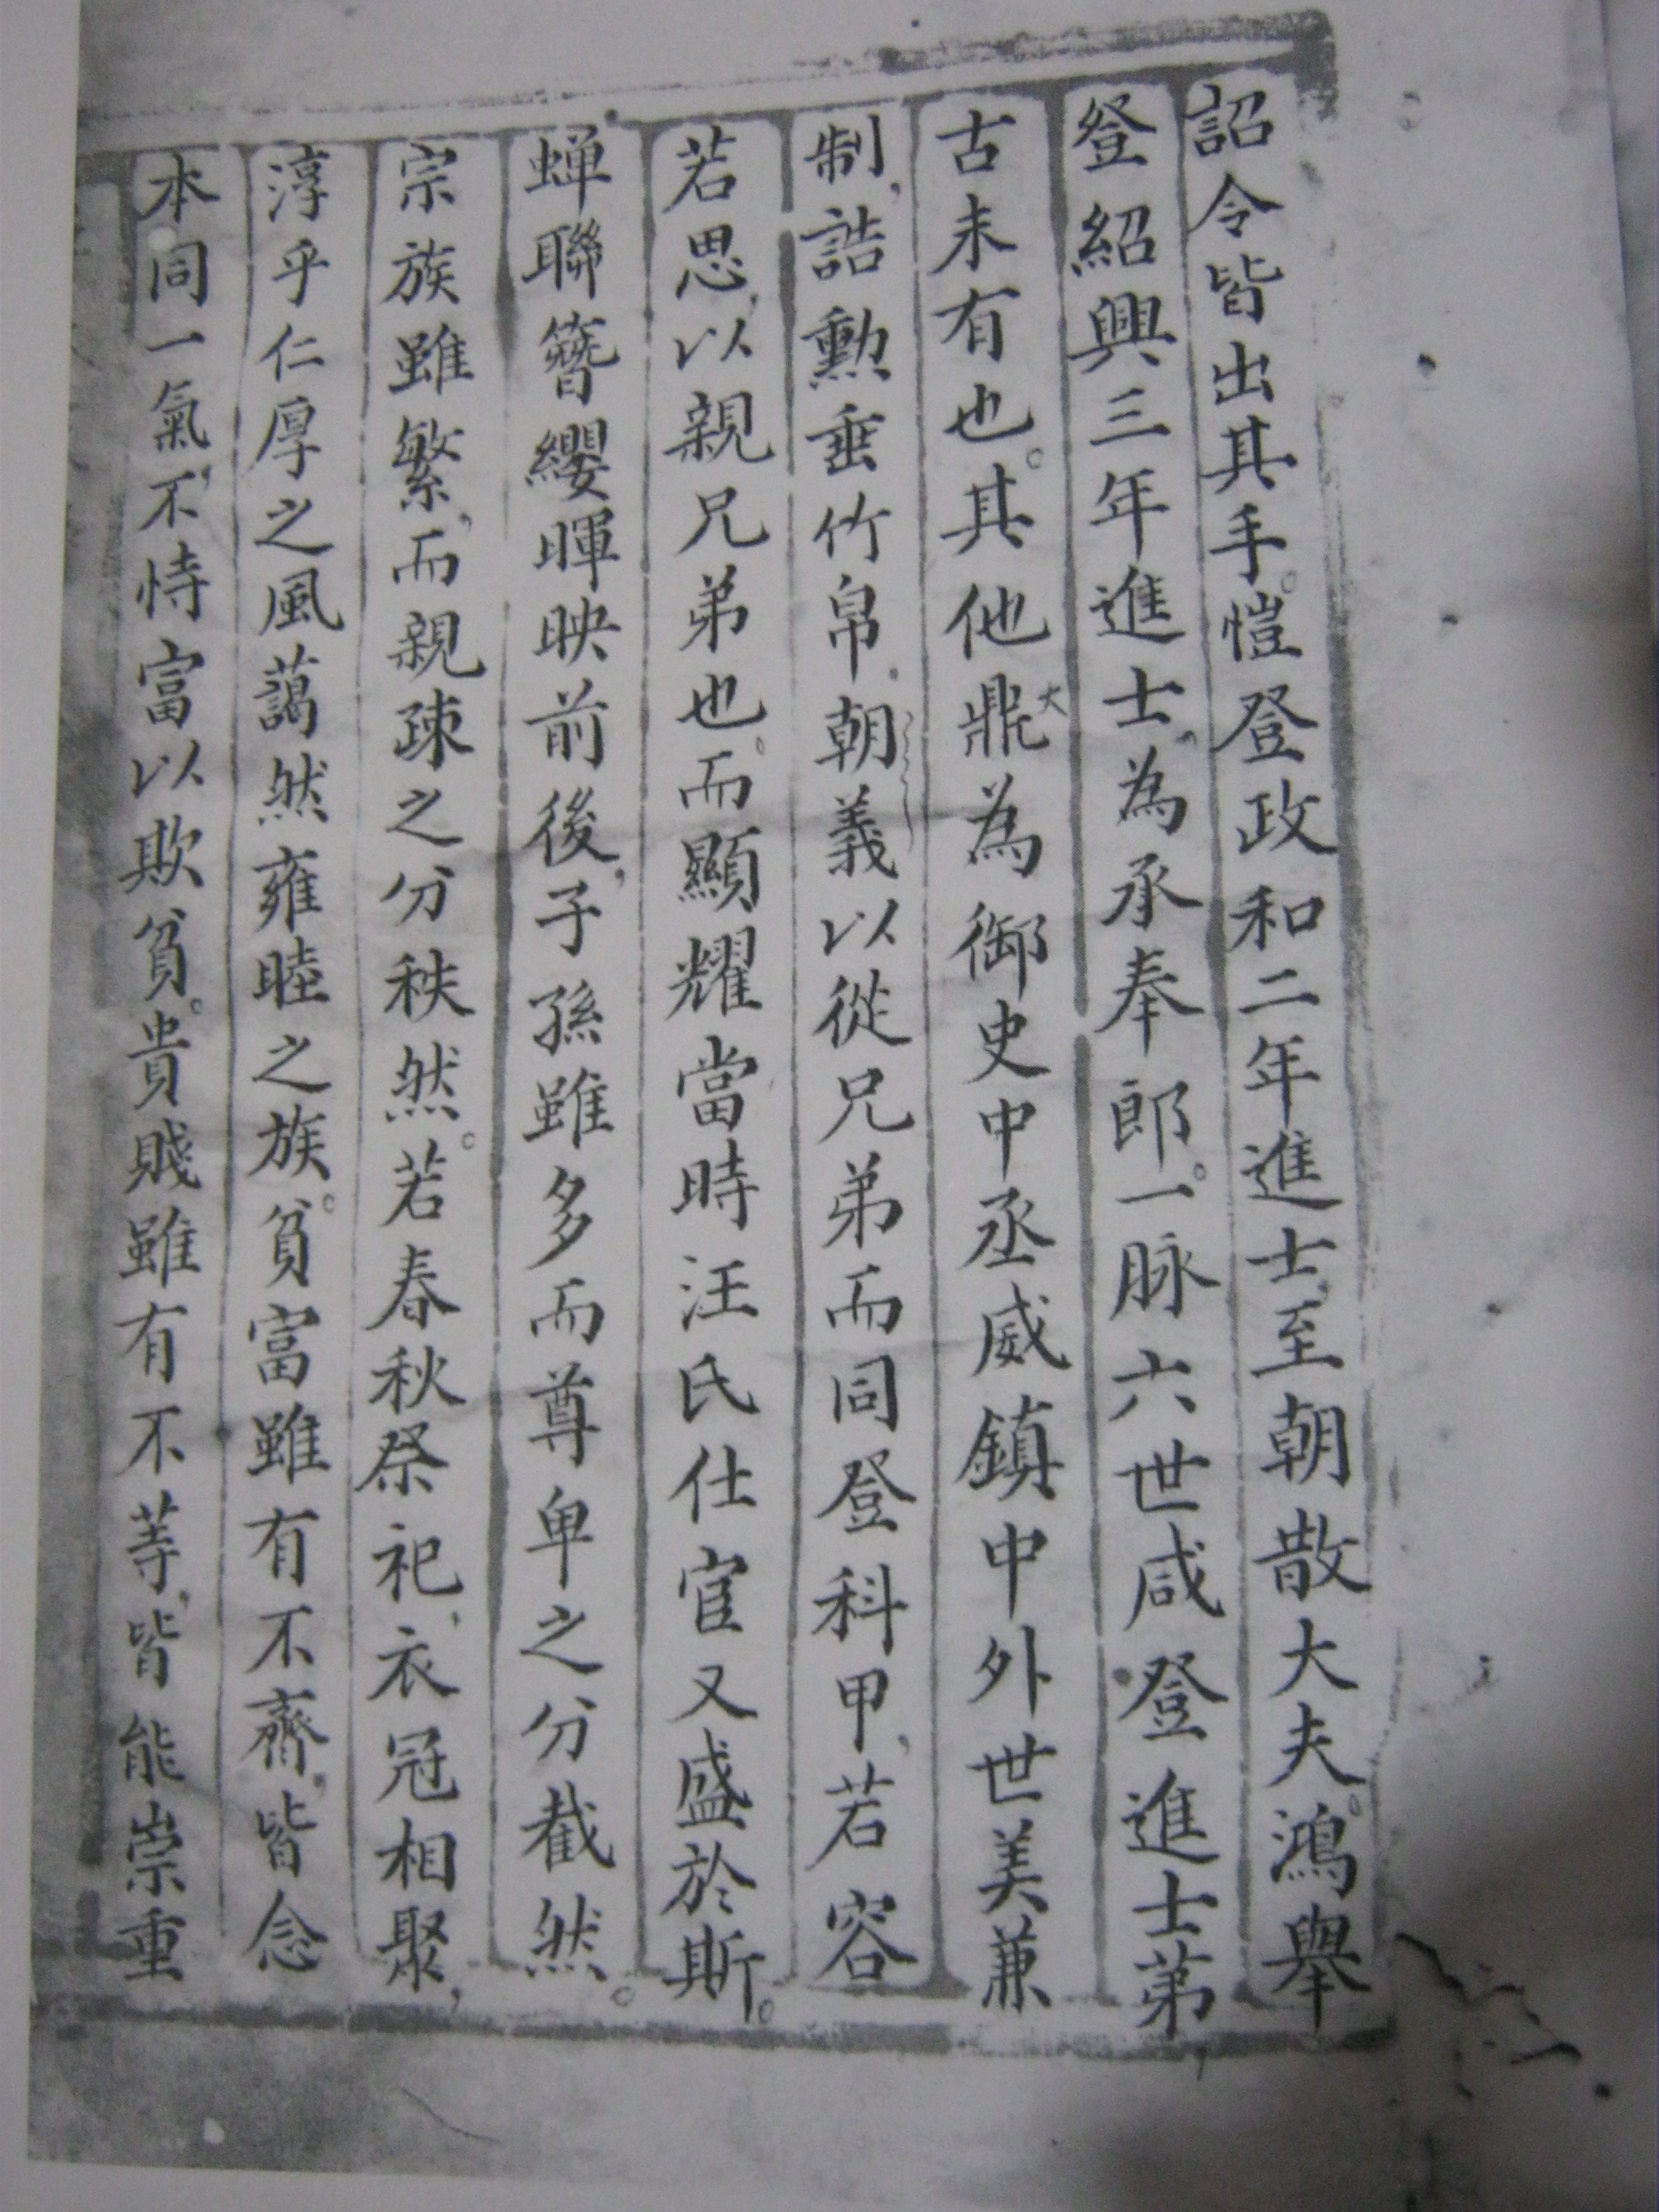 詔令皆出其手。愷登政和二年進士,至朝散大夫。鴻舉
登紹興三年進士,為承奉郎。一脉六世咸登進士第
古未有也。其他大鼎為御史中丞威鎮中外世美兼
制,誥勲垂竹帛。朝義以從兄弟而同登科甲,若容
若思,以親兄弟也。而顯耀當時汪氏仕宦又盛於斯。
蝉聯簪纓暉映前後,子孫雖多而尊卑之分截然。
宗族雖繁,而親踈之分秩然。若春秋祭祀,衣冠相聚,
淳乎仁厚之風藹然雍睦之族。貧富雖有不齊,皆念
本同一氣,不恃富以欺貧。貴賤雖有不等,皆能崇重